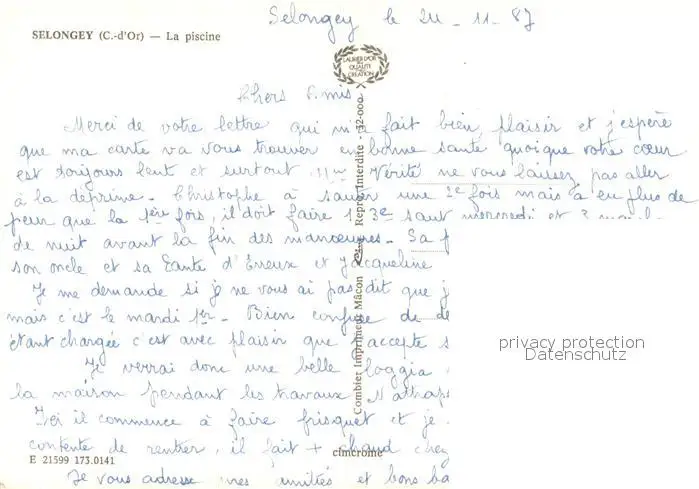 Selongey le 24 - 11 - 87
SELONGEY (C.-d'Or) — La piscine
LAURIER D'OR
DE LA
QUALITE
CREATION
Chers Amis
Merci de votre lettre qui m'a fait bien plaisir et j'espère
que ma carte va vous trouver en bonne santé quoique votre cœur
est toujours lent et surtout Vérité ne vous laissez pas aller
à la déprime. Christophe à sauter une 2e fois mais à eu plus de
peur que la 1ère fois, il doit faire 3e saut mercredi et
de nuit avant la fin des manœuvres. Sa
son oncle et sa Tante d'Evreux et Jacqueline
Je me demande si je ne vous ai pas dit que j
mais c'est le mardi 1er. Bien confuse de de
étant chargée c'est avec plaisir que j'accepte s
Je verrai donc une belle loggia
la maison pendant les travaux. N'attrap
Ici il commence à faire frisquet et je
contente de rentrer, il fait + chaud chez
Je vous adresse mes amitiés et bons ba
Combier Imprimeur Mâcon
Repr. Interdite - 32-000
cimcrome
E 21599 173.0141
privacy protection
Datenschutz